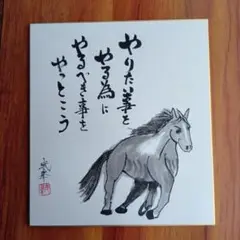 やりたい事を
やる為に
やるべき事を
やっとこう